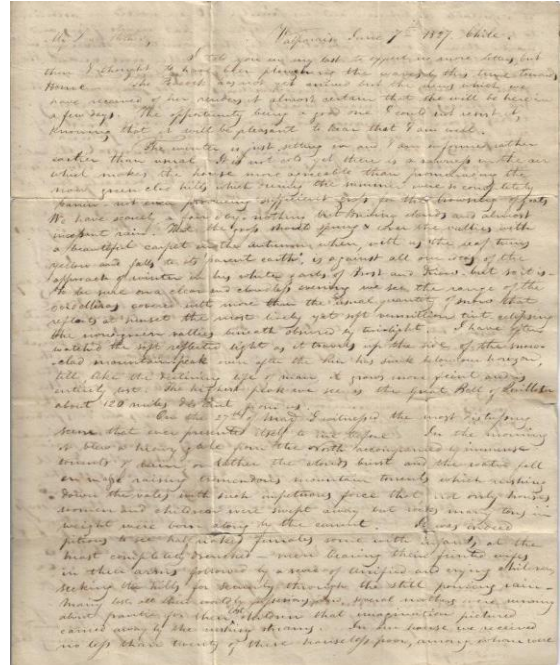 Valparaiso June 7th 1827. Chile.
I told you in my last to expect no more letters but
then I thought to have been plowing the waves by this time towards
home. The Brandt has not yet arrived but the news which we
have received of her renders it almost certain that she will be here in
a few days. The opportunity being a good one I could not resist it,
knowing that it will be pleasant to hear that I am well.
The winter is just setting in and I am informed rather
earlier than usual. It is not cold yet there is a rawness in the air
which makes the house more agreeable than
now green clad hills which during the summer were so completely
barren not even producing sufficient grass for the browsing of goats
We have scarcely a fair day nothing but driving clouds and almost
incessant rain. That the grass should spring & cover the vallies with
a beautiful carpet in the autumn when, with us the leaf turns
yellow and falls to its parent earth, is against all our ideas of the
approach of winter in his white garb of Frost and Snow. but so it is
to be sure on a clear and cloudless evening we see the range of the
cordilleras covered with more than the usual quantity of snow that
reflects at sunset the most lively yet soft vermillion tint eclipsing
the vallies beneath obscured by twilight. I have often
watched the soft reflected light as it travels up the side of the snow
clad mountain peak even after the Sun has sunk below our horizon,
till like the declining life of man it grows more faint and is
entirely lost. The highest peak we see is the great Bell of Quillota
about 120 miles distant from us.
On the 27th May I witnessed the most distressing
scene that ever presented itself to me before. In the morning
it blew a heavy gale from the North accompanied by immense
torrents of rain, or rather the clouds burst and the water fell
en masse raising tremendous mountain torrents which rushing
down the vales with such impetuous force that not only houses
women and children were swept away but rocks many tons
weight were born along by the current. It was indeed
piteous to see half naked females some with infants at the
most completely drenched - men bearing their fainted wives
in their arms followed by a crowd of terrified and crying children
seeking the hills for security through the still pouring rain
Many lost all their worldly possessions, and several mothers were running
about frantic for their lost children that imagination pictured
carried away by the rushing streams. In our house we received
no less than twenty of these houseless poor, among whom were